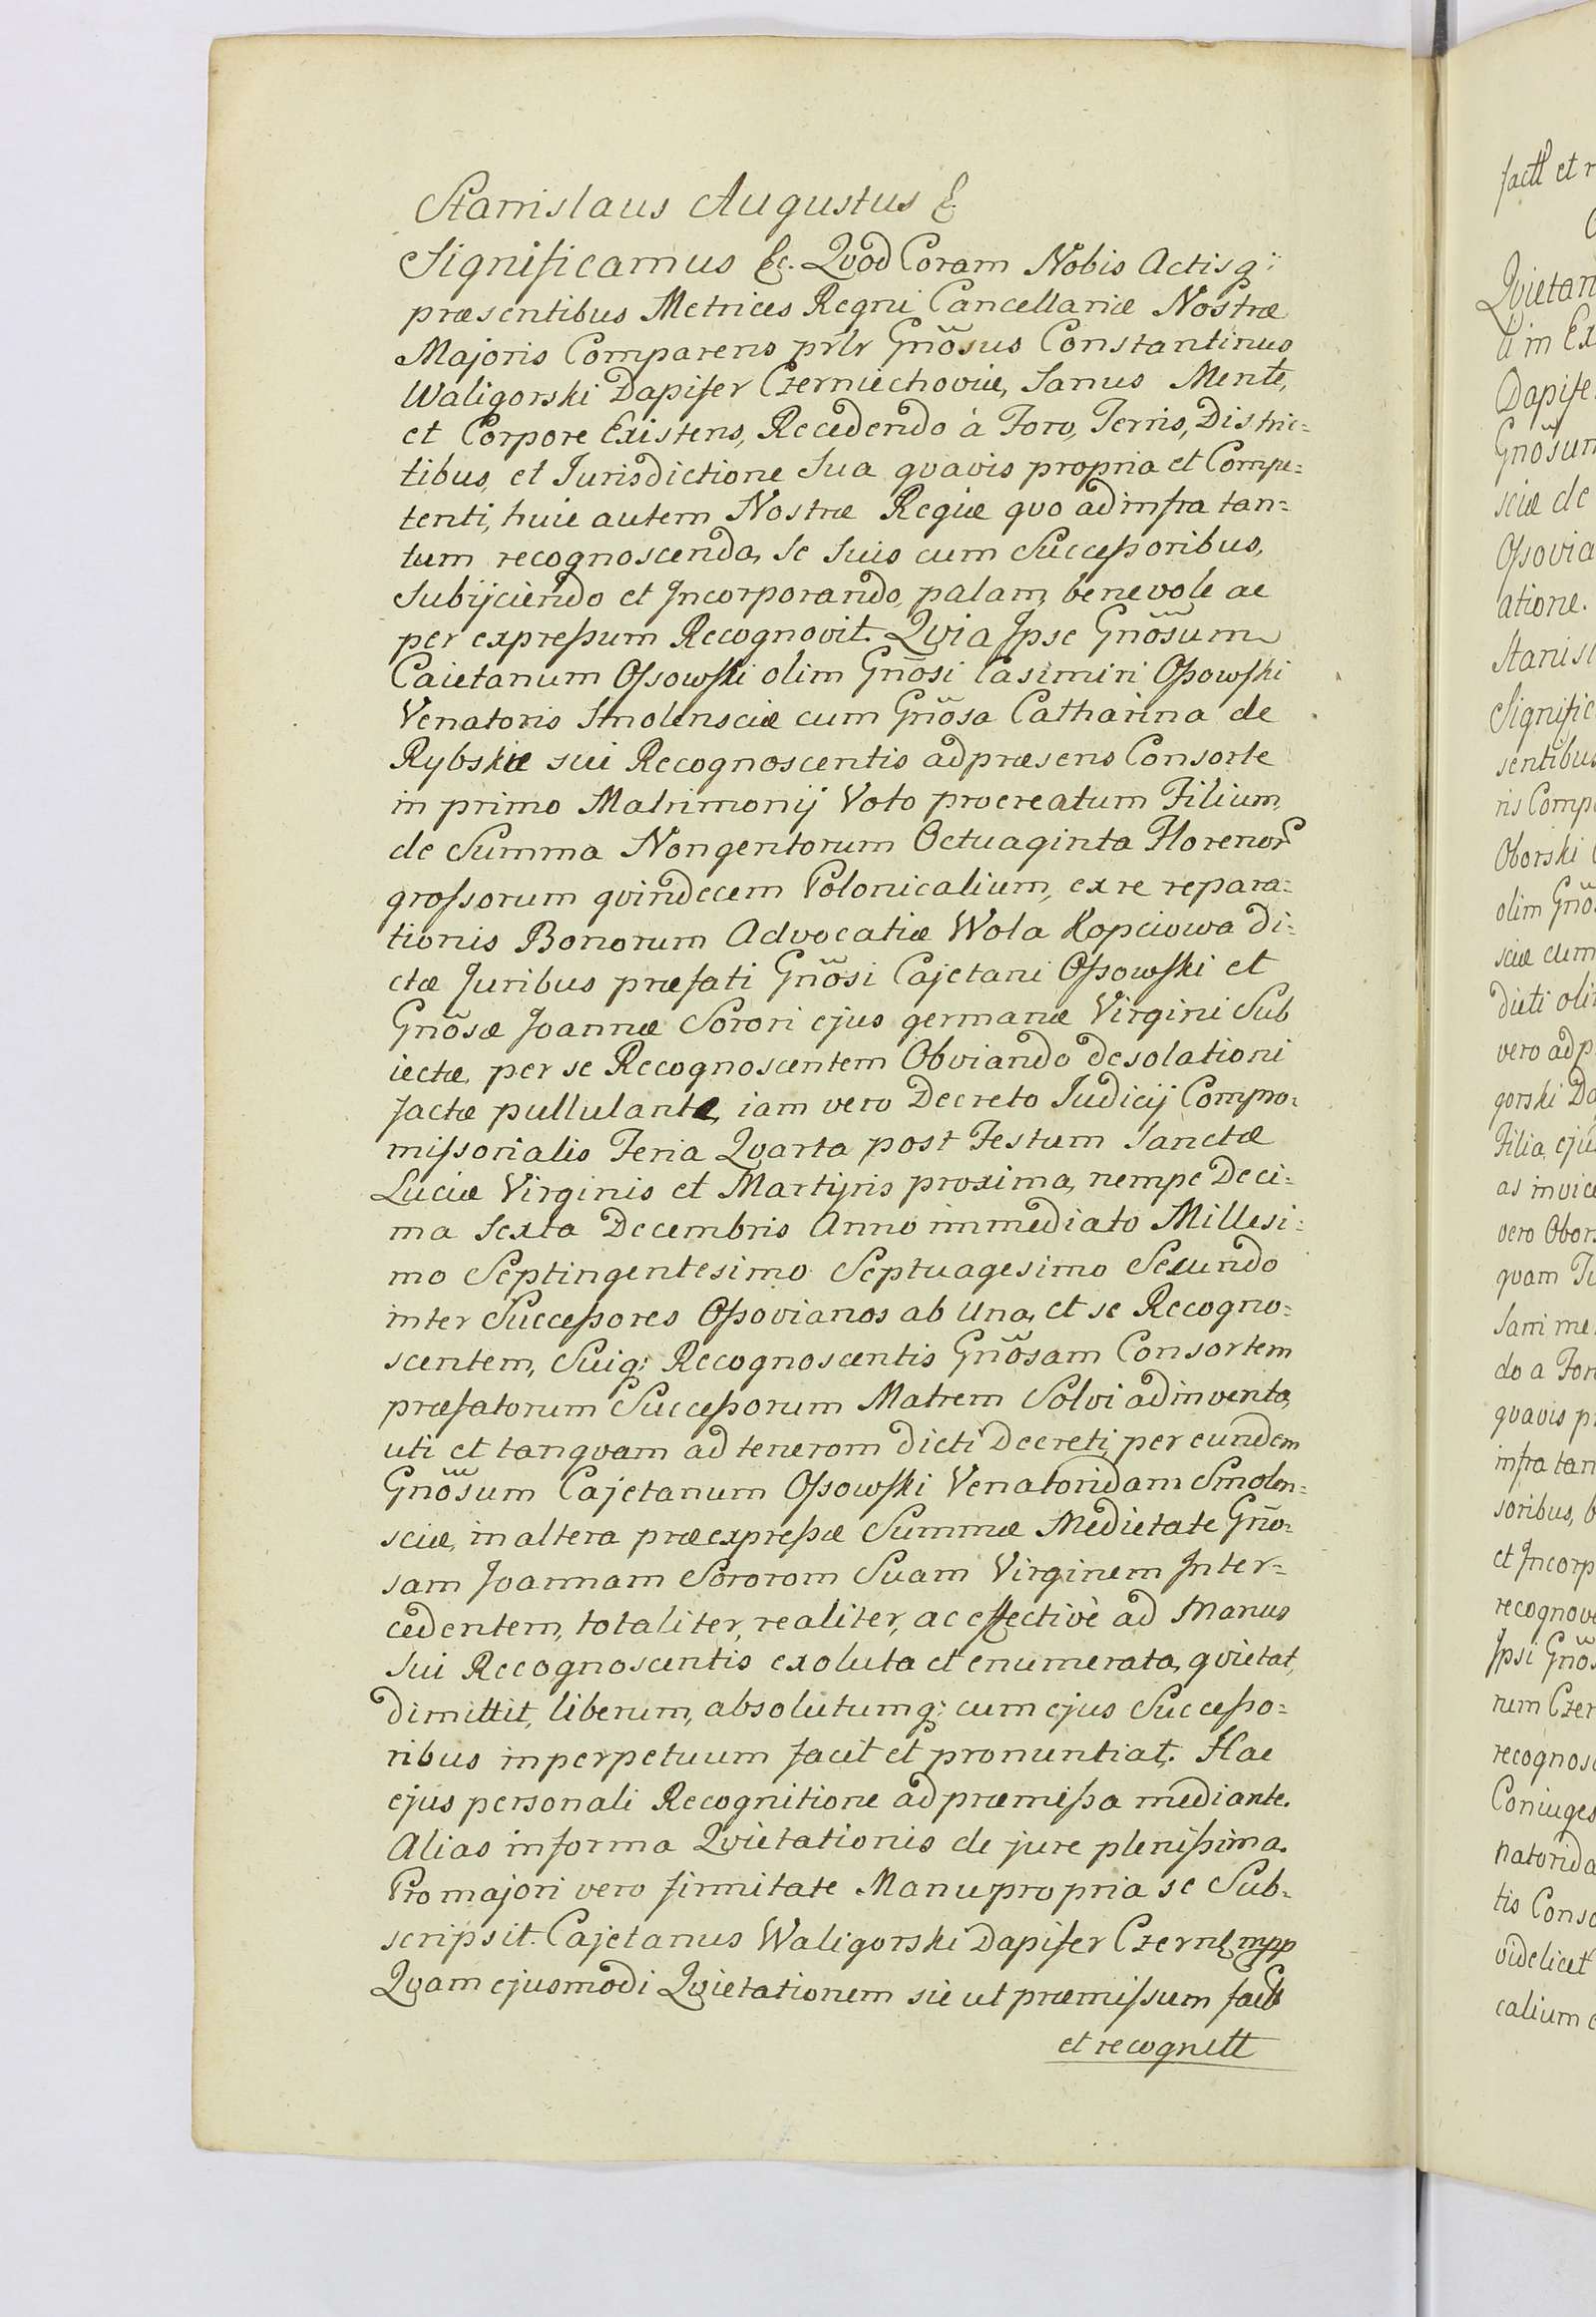 Stanislaus Augustus &
Significamus &c. Qvod Coram Nobis Actisq;
præsentibus Metrices Regni Cancellariæ Nostræ
Majoris Comparens prlr Gnosus Constantinus
Waligorski Dapifer Czerniechoviæ, Sanus Mente,
et Corpore Existens, Recedendo à Foro, Terris, Distric=
tibus, et Jurisdictione Sua qvavis propria et Compe=
tenti, huic autem Nostræ Regiæ qvo ad infra tan=
tum recognoscenda, Se Suis cum Successoribus,
Subijciendo et Jncorporando, palam, benevole ac
per expressum Recognovit. Qvia Jpse Gnosum
Caietanum Ossowski olim Gnosi Casimiri Ossowski
Venatoris Smolensciæ cum Gnosa Catharina de
Rybskiæ sui Recognoscentis ad præsens Consorte
in primo Matrimonij Voto procreatum Filium,
de Summa Nongentorum Octuaginta Florenor
grossorum qvindecem Polonicalium, ex re repara=
tionis Bonorum Advocatiæ Wola Kopciowa di=
ctæ Juribus præfati Gnosi Cajetani Ossowski et
Gnosæ Joannæ Sorori ejus germanæ Virgini Sub
iectæ, per se Recognoscentem Obviando desolationi
factæ pullulante, iam vero Decreto Judicij Compro=
missorialis Feria Qvarta post Festum Sanctæ
Luciæ Virginis et Martijris proxima, nempe Deci=
ma Sexta Decembris Anno immediato Millesi=
mo Septingentesimo Septuagesimo Secundo
inter Successores Ossovianos ab una, et se Recogno=
scentem, Suiq; Recognoscentis Gnosam Consortem
præfatorum Successorum Matrem Solvi adinventa,
uti et tanqvam ad tenerom dicti Decreti per eundem
Gnosum Cajetanum Ossowski Venatoridam Smolen=
sciæ, in altera præexpressæ Summæ Medietate Gno=
sam Joannam Sororom Suam Virginem Jnter=
cedentem, totaliter, realiter, ac effectivè ad Manus
Sui Recognoscentis exoluta et enumerata, qvietat,
dimittit, liberum, absolutumq; cum ejus Successo=
ribus in perpetuum facit et pronuntiat. Hac
ejus personali Recognitione ad præmissa mediante.
Alias in forma Qvietationis de jure plenissima.
Pro majori vero firmitate Manu propria se Sub=
scripsit. Cajetanus Waligorski Dapifer Czern mpp
Qvam ejusmodi Qvietationem sic ut præmissum
et recognitt
factt et r
Qvietan
Dapife
Gnosum
sciæ de
Ossovia
atione.
Stanisl
Signific
sentibus
ris Comp
Oborski
olim Gno
sciæ cum
dicti oli
vero ad p
gorski Da
Filia, eju
as invice
vero Obors
qvam Tu
Sani me
do a For
qvavis pr
infra tan
soribus, b
et Jncorp
recognove
Jpsi Gnos
num Czer
recognosc
Coniuges
natorida
tis Conso
videlicet
calium e